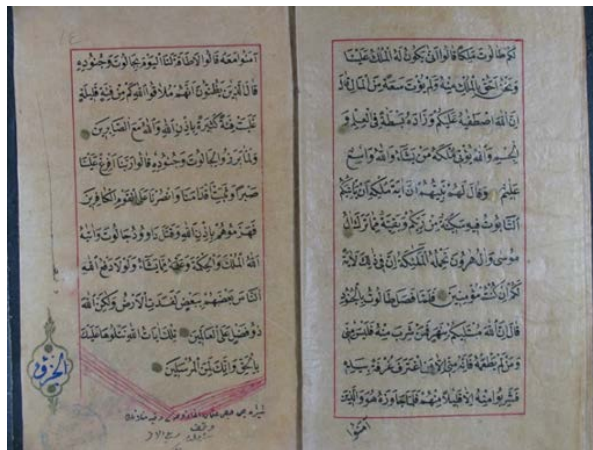 لكم طالوت ملكا قالوا انى يكون له الملك علينا
ونحن احق بالملك منه ولم يؤت سعة من المال قال
ان الله اصطفيه عليكم وزاده بسطة في العلم و
الجسم والله يؤتى ملكه من يشاء والله واسع
عليم وقال لهم نبيهم ان اية ملكه ان ياتيكم
التابوت فيه سكينة من ربكم وبقية مما ترك ال
موسى وال هرون تحمله الملئكة ان في ذلك لاية
لكم ان كنتم مؤمنين فلما فصل طالوت بالجنود
قال ان الله مبتليكم بنهر فمن شرب منه فليس منى
ومن لم يطعمه فانه منى الا من اغترف غرفة بيده
فشربوا منه الا قليلا منهم فلما جاوزه هو والذين
امنوا
آمنوا معه قالوا لا طاقة لنا اليوم بجالوت وجنوده
قال الذين يظنون انهم ملاقوا الله كم من فئة قليلة
غلبت فئة كثيرة باذن الله والله مع الصابرين
ولما برزوا لجالوت وجنوده قالوا ربنا افرغ علينا
صبرا وثبت اقدامنا وانصرنا على القوم الكافرين
فهزموهم باذن الله وقتل داود جالوت واتيه
الله الملك والحكمة وعلمه مما يشاء ولولا دفع الله
الناس بعضهم ببعض لفسدت الارض ولكن الله
ذو فضل على العالمين تلك ايات الله نتلوها عليك
بالحق وانك لمن المرسلين
الحزب